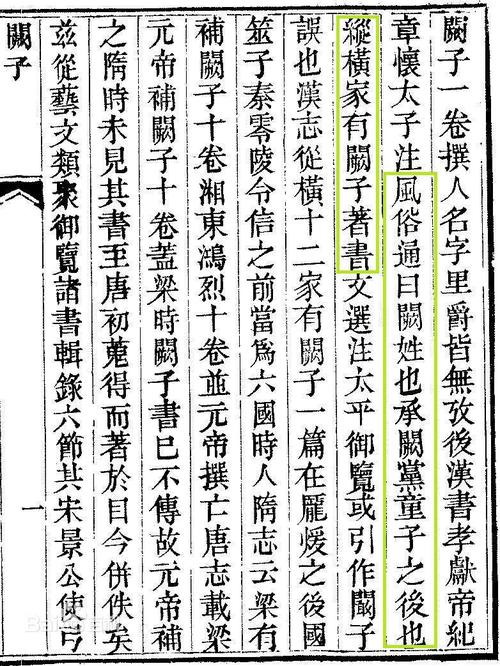 闕子一卷撰人名字里爵皆無攷後漢書孝獻帝紀
章懷太子注風俗通曰闕姓也承闕黨童子之後也
縱橫家有闕子著書文選注太平御覽或引作闞子
誤也漢志從橫十二家有闕子一篇在龐煖之後國
筮子秦零陵令信之前當為六國時人隋志云梁有
補闕子十卷湘東鴻烈十卷並元帝撰亡唐志載梁
元帝補闕子十卷蓋梁時闕子書已不傳故元帝補
之隋時未見其書至唐初蒐得而著於目今併佚矣
茲從藝文類聚御覽諸書輯錄六節其宋景公使弓
闕子
一